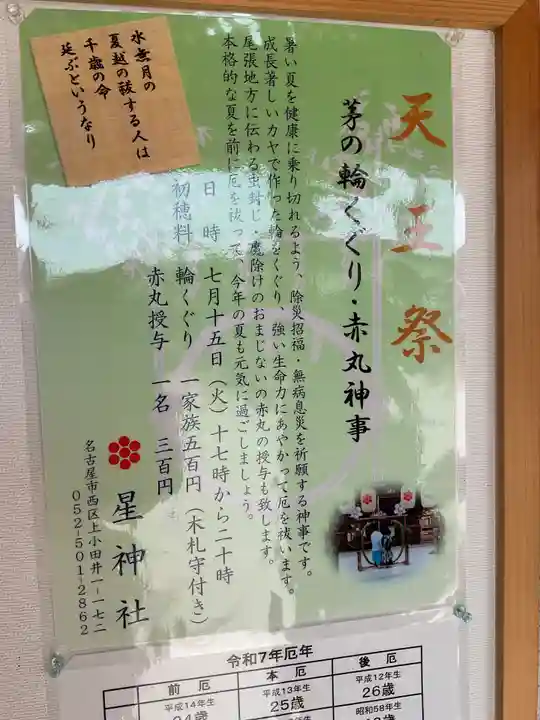 天王祭
茅の輪くぐり・赤丸神事
暑い夏を健康に乗り切れるよう、除災招福・無病息災を祈願する神事です。
成長著しいカヤで作った輪をくぐり、強い生命力にあやかって厄を祓います。
尾張地方に伝わる虫封じ・魔除けのおまじないの赤丸の授与も致します。
本格的な夏を前に厄を祓って、今年の夏も元気に過ごしましょう。
日時 七月十五日(火)十七時から二十時
初穂料 輪くぐり 一家族五百円(木札守付き)
赤丸授与 一名 三百円
星神社
名古屋市西区上小田井一-一七二
052-501-2862
水無月の
夏越の祓する人は
千歳の命
延ぶというなり
令和7年厄年
前厄 本厄 後厄
平成14年生 平成13年生 平成12年生
24歳 25歳 26歳
昭和58年生